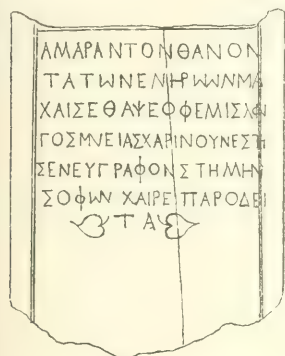 ΑΜΑΡΑΝΤΟΝΘΑΝΟΝ
ΤΑΤΩΝΕΝΗΡΩΩΝΜΑ
ΧΑΙΣΕΘΑΨΕΟΦΕΜΙΣΛΟ
ΓΟΣΜΝΕΙΑΣΧΑΡΙΝΟΥΝΕΣΤΗ
ΣΕΝΕΥΓΡΑΦΟΝΣΤΗΜΗΝ
ΣΟΦΩΝ ΧΑΙΡΕ ΠΑΡΟΔΕΙ
ΤΑ